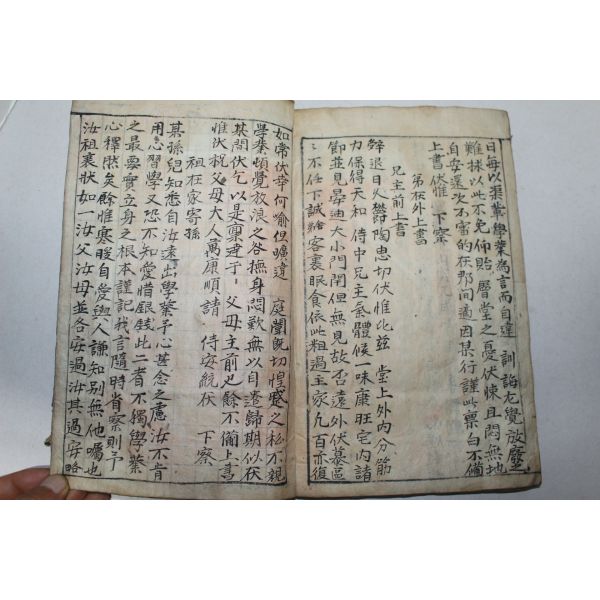 日每以渠業學業爲言而自違 訓誨尤覺放廢
難抹以此不免仰貽 層堂之憂伏悚且悶無地
自安還次不審的在那間適因某行謹此稟白不備
上書伏惟 下察
弟在外上書
兄主前上書
辭退日久欝陶忠切伏惟比玆 堂上外內分節
力保得天和 侍中兄主氣體候一味康旺宅內諸
節並見安迪大小門閈但無見故否遠外伏慕區
〻不任下誠 客裏眠食依此粗過主家凡百亦復
如常伏幸何喩但曠違 庭闈旣切惶蹙之私不親
學業頓覺放浪之咎撫身悶歎無以自遣歸期似伏
某間伏乞以是稟達于 父母主前也餘不備上書
惟伏祝父母大人萬康順請 侍安統伏 下察
祖在家寄孫
某孫兒知悉自汝遠出學業予心甚念之慮汝不肯
用心習學又恐不知愛惜銀錢此二者不獨學業
之最要實立身之根本謹記我言隨時省察則予
心釋然矣餘惟寒暖自愛與人謙知別無他囑也
汝祖裏狀如一汝父汝母並各安過汝其過安略